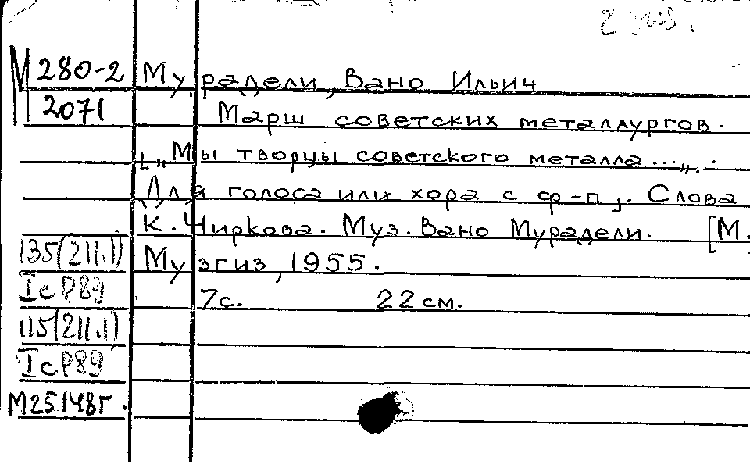 М280-2 Мурадели, Вано Ильич
2071 Марш советских металлургов.
[„Мы творцы советского металла...„.
Для голоса или хора с ф-п]. Слова
К. Чиркова. Муз. Вано Мурадели. [М.]
135(211.1) Музгиз, 1955.
IcP89 7с. 22 см.
115(211.1)
IcP89
М25148г.